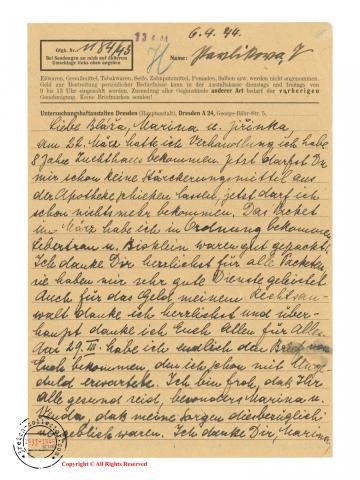 6.4.44.
Gfgr. Nr. 1184/43
Bei Sendungen an mich auf äußeren
Umschlag links oben angeben
Name: Pavlikova V
Eßwaren, Genußmittel, Tabakwaren, Seife, Zahnputzmittel, Pomaden, Salben usw. werden nicht angenommen.
Geld zur Bestreitung persönlicher Bedürfnisse kann in der Anstaltskasse dienstags und freitags von
9 bis 12 Uhr eingezahlt werden. Zusendung aller Gegenstände anderer Art bedarf der vorherigen
Genehmigung. Keine Briefmarken senden!
Untersuchungshaftanstalten Dresden (Hauptanstalt), Dresden A 24, George-Bähr-Str. 5.
Liebe Bláža, Marina u. Jřinka,
am 22. März hatte ich Verhandlung ich habe
8 Jahre Zuchthaus bekommen. Jetzt darfst Du
mir schon keine Stärckerungsmittel aus
der Apotheke schicken lassen, jetzt darf ich
schon nichts mehr bekommen. Das Packet
im März habe ich in Ordnung bekommen
Lebertran u. Biomlein waren gut gepackt.
Ich danke Dir herzlichst für alle Packeten,
sie haben mir sehr gute Dienste geleistet
Auch für das Geld, meinem Rechtsan-
walt danke ich herzlichst und über-
haupt danke ich Euch Allen für Alles
Am 29. III. habe ich endlich den Brief von
Euch bekommen, den ich schon mit
duld erwartete. Ich bin froh, daß Ihr
alle gesund seid, besonders Marina u.
daß meine Sorgen diesbezüglich
vergeblich waren. Ich danke Dir, Marina,
1933-1945
Copyright © All Rights Reserved